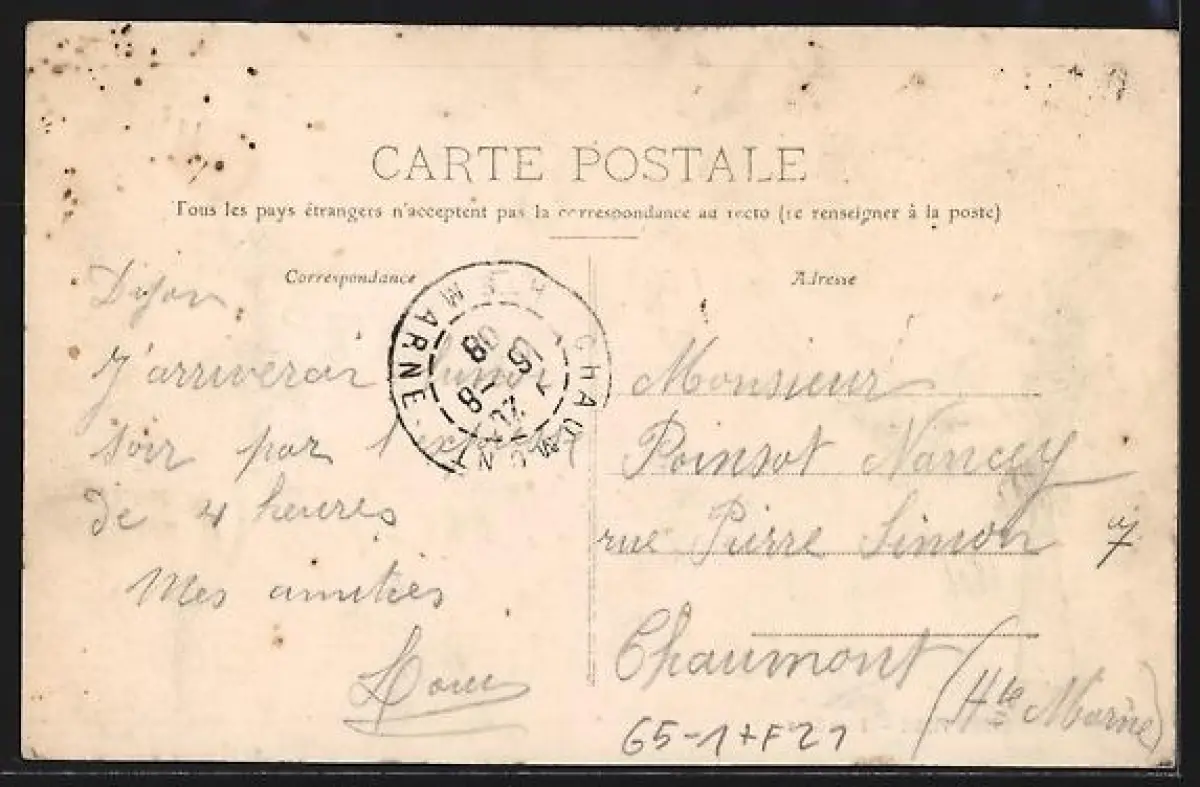 CARTE POSTALE
Tous les pays étrangers n'acceptent pas la correspondance au recto (se renseigner à la poste)
Correspondance
Dijon
J'arriverai lundi
soir par l'express
de 4 heures
Mes amitiés
CHAUMONT
HTE MARNE
Adresse
Monsieur
Poinsot Nancey
rue Pierre Simon 7
Chaumont
(Hte Marne)
65-1+F21